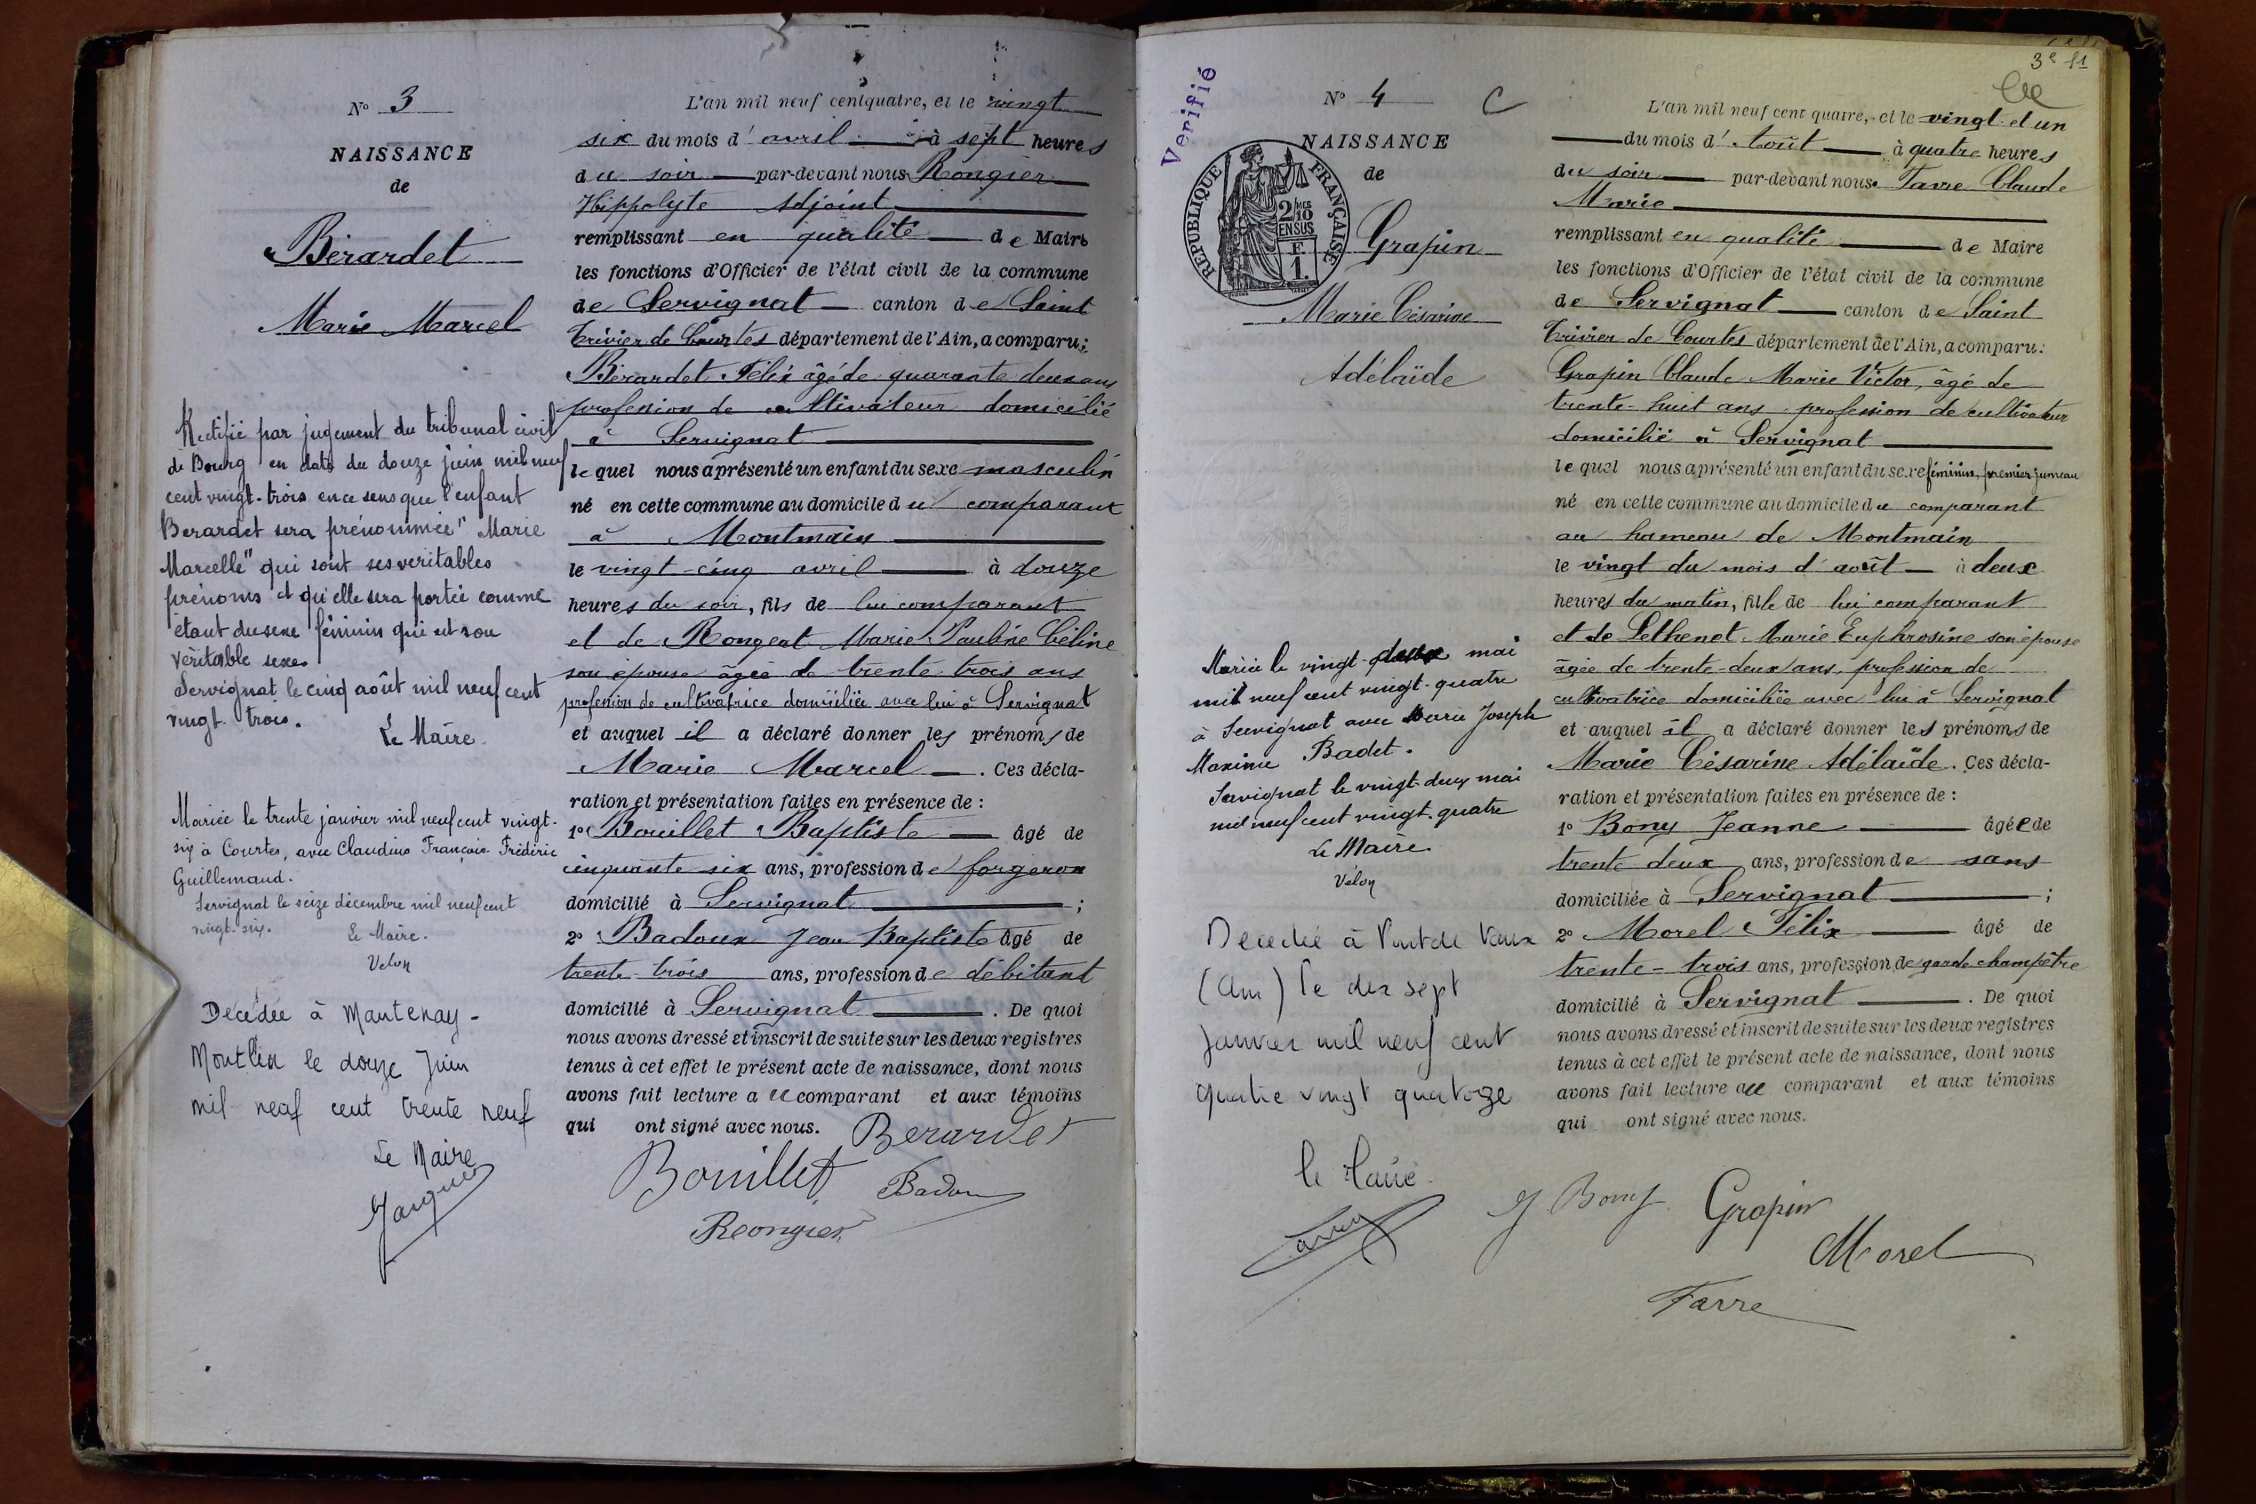 N° 3
NAISSANCE
de
Bérardet
Marie Marcel
Rectifié par jugement du tribunal civil
de Bourg en date du douze juin mil neuf
cent vingt-trois en ce sens que l'enfant
Berardet sera prénommée "Marie
Marcelle" qui sont ses veritables
prénoms et qu'elle sera portée comme
étant du sexe féminin qui est son
véritable sexe.
Servignat le cinq août mil neuf cent
vingt trois.
Le Maire.
Mariée le trente janvier mil neuf cent vingt-
six à Courtes, avec Claudius François Frédéric
Guillemaud.
Servignat le seize décembre mil neuf cent
vingt-six.
Le Maire.
Velon
Décédée à Mantenay-
Montlin le douze Juin
mil neuf cent trente neuf
Le Maire
L'an mil neuf cent quatre, et le vingt
six du mois d'avril à sept heures
du soir par-devant nous Rongier
Hippolyte Adjoint
remplissant en qualité de Maire
les fonctions d'Officier de l'état civil de la commune
de Servignat canton de Saint
Trivier de Courtes département de l'Ain, a comparu:
Bérardet Félix âgé de quarante deux ans
profession de cultivateur domicilié
à Servignat
lequel nous a présenté un enfant du sexe masculin
né en cette commune au domicile du comparant
à Montmain
le vingt-cinq avril à douze
heures du soir, fils de lui comparant
et de Rongeat Marie Pauline Céline
son épouse âgée de trente trois ans
profession de cultivatrice domiciliée avec lui à Servignat
et auquel il a déclaré donner les prénoms de
Marie Marcel. Ces décla-
ration et présentation faites en présence de :
1° Bouillet Baptiste âgé de
cinquante six ans, profession de forgeron
domicilié à Servignat ;
2° Badoux Jean Baptiste âgé de
trente-trois ans, profession de débitant
domicilié à Servignat. De quoi
nous avons dressé et inscrit de suite sur les deux registres
tenus à cet effet le présent acte de naissance, dont nous
avons fait lecture au comparant et aux témoins
qui ont signé avec nous. Berardet
Bouillet Badoux
Rongier
Verifié
N° 4 C
NAISSANCE
de
REPUBLIQUE FRANÇAISE
2/10 MES EN SUS
F 1
Grapin
Marie Césarine
Adélaïde
Mariée le vingt-deux mai
mil neuf cent vingt-quatre
à Servignat avec Marie Joseph
Maxime Badet.
Servignat le vingt-deux mai
mil neuf cent vingt-quatre
Le Maire
Vélon
Decedée à Pont de Vaux
(Ain) le dix sept
Janvier mil neuf cent
quatre vingt quatorze
le Maire
3e f1
L'an mil neuf cent quatre, et le vingt et un
du mois d'Août à quatre heures
du soir par-devant nous Favre Claude
Marie
remplissant en qualité de Maire
les fonctions d'Officier de l'état civil de la commune
de Servignat canton de Saint
Trivier de Courtes département de l'Ain, a comparu:
Grapin Claude Marie Victor, âgé de
trente-huit ans profession de cultivateur
domicilié à Servignat
lequel nous a présenté un enfant du sexe féminin, premier jumeau
né en cette commune au domicile du comparant
au hameau de Montmain
le vingt du mois d'août à deux
heures du matin, fille de lui comparant
et de Lethenet Marie Euphrosine son épouse
âgée de trente-deux ans, profession de
cultivatrice domiciliée avec lui à Servignat
et auquel il a déclaré donner les prénoms de
Marie Césarine Adélaïde. Ces décla-
ration et présentation faites en présence de :
1° Bony Jeanne âgée de
trente deux ans, profession de sans
domiciliée à Servignat ;
2° Morel Félix âgé de
trente-trois ans, profession de garde champêtre
domicilié à Servignat. De quoi
nous avons dressé et inscrit de suite sur les deux registres
tenus à cet effet le présent acte de naissance, dont nous
avons fait lecture au comparant et aux témoins
qui ont signé avec nous.
J Bony Grapin
Morel
Favre